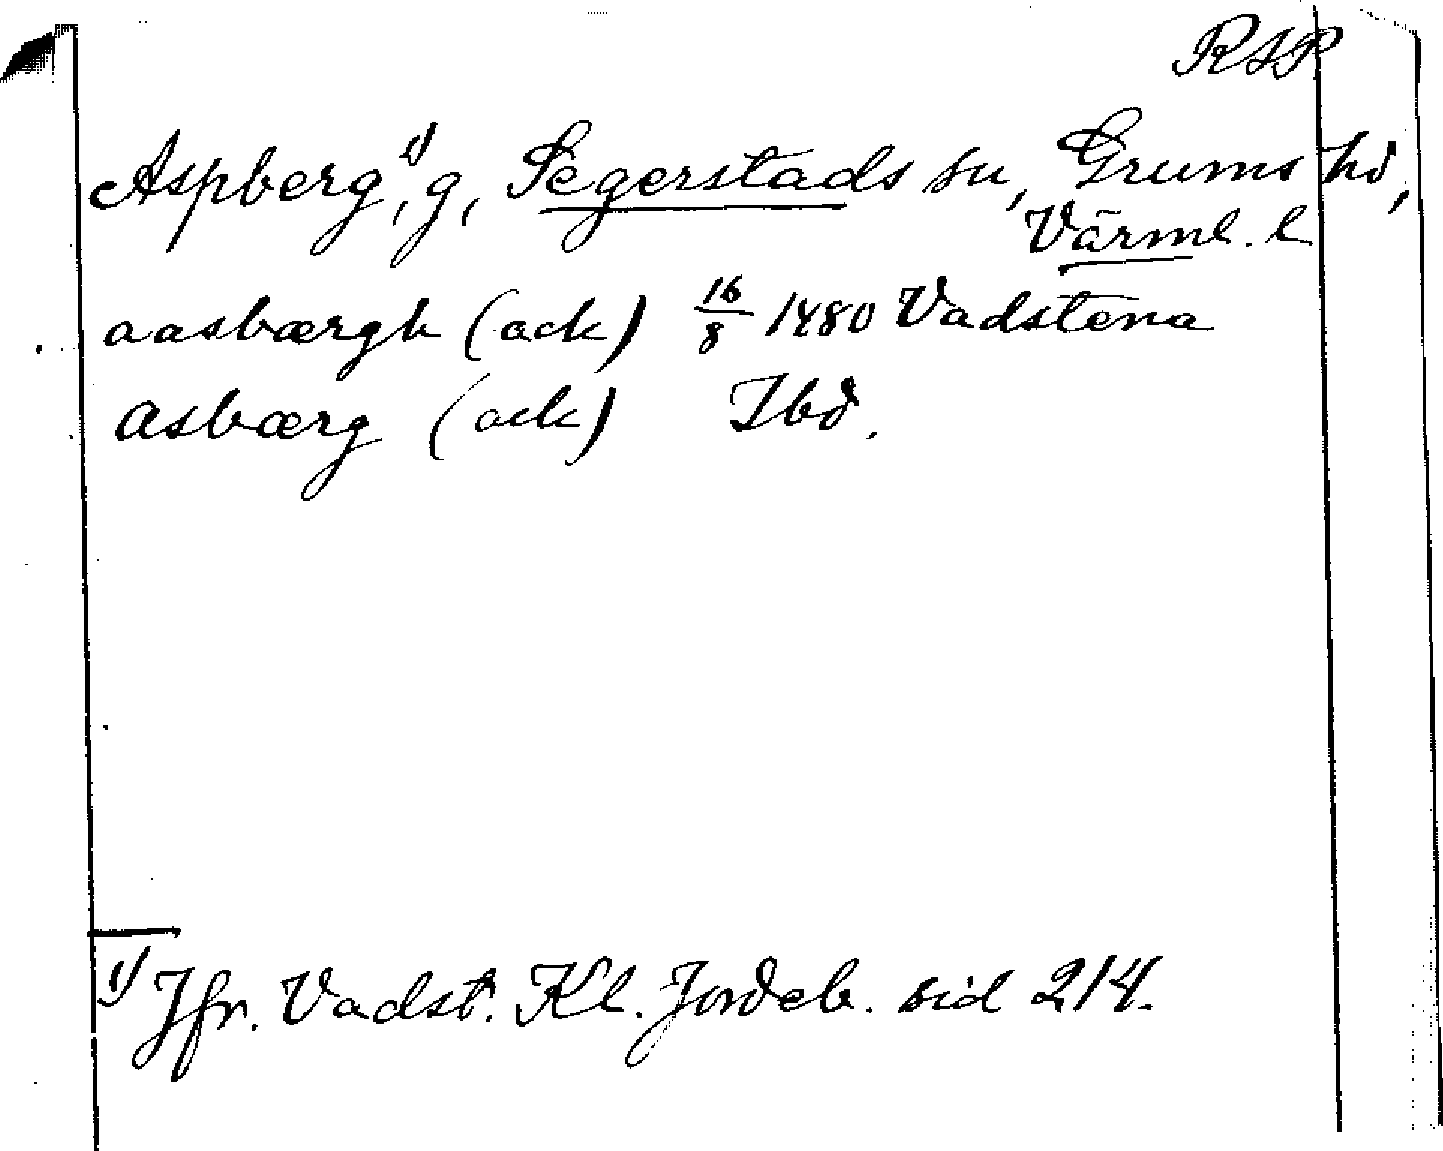 RAP
Aspberg,¹⁾ g, Segerstads sn, Grums hd,
Värml. l
aasbærgh (ack) 16/8 1480 Vadstena
Asbærg (ack) Ibd.
¹⁾ Jfr. Vadst. Kl. Jordeb. sid 214.